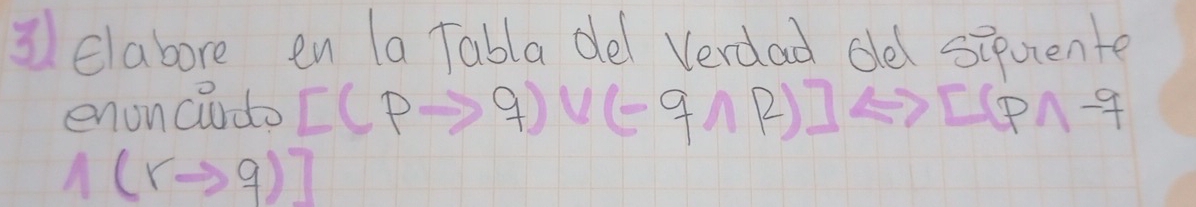 3) Elabore en la Tabla del Verdad del siguiente
enunciado [(p → q) ∨ (-q ∧ R)] ↔ [(p ∧ -q
∧ (r → q)]